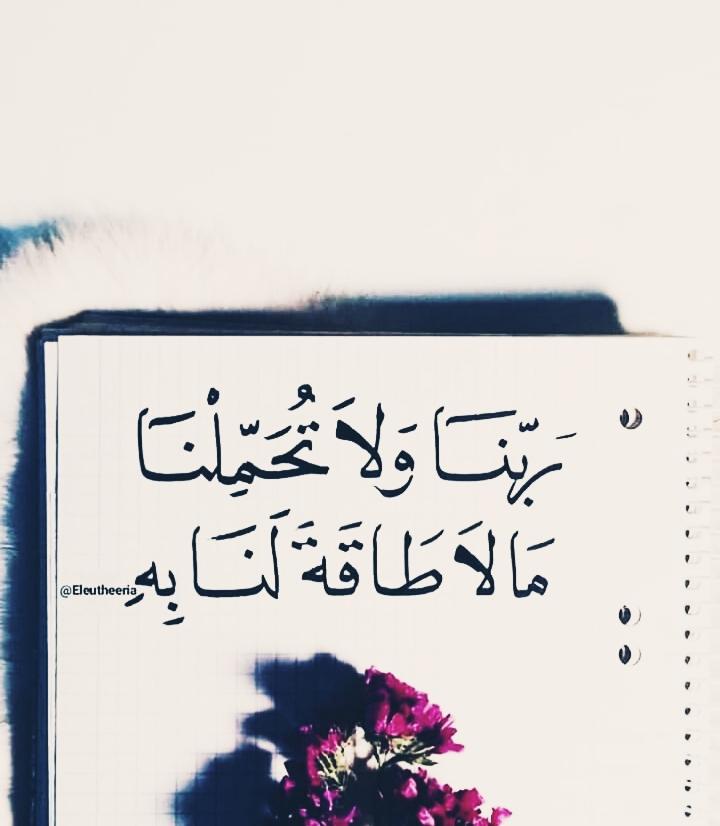 رَبَّنَا وَلَا تُحَمِّلْنَا
مَا لَا طَاقَةَ لَنَا بِهِ
@Eleutheeria